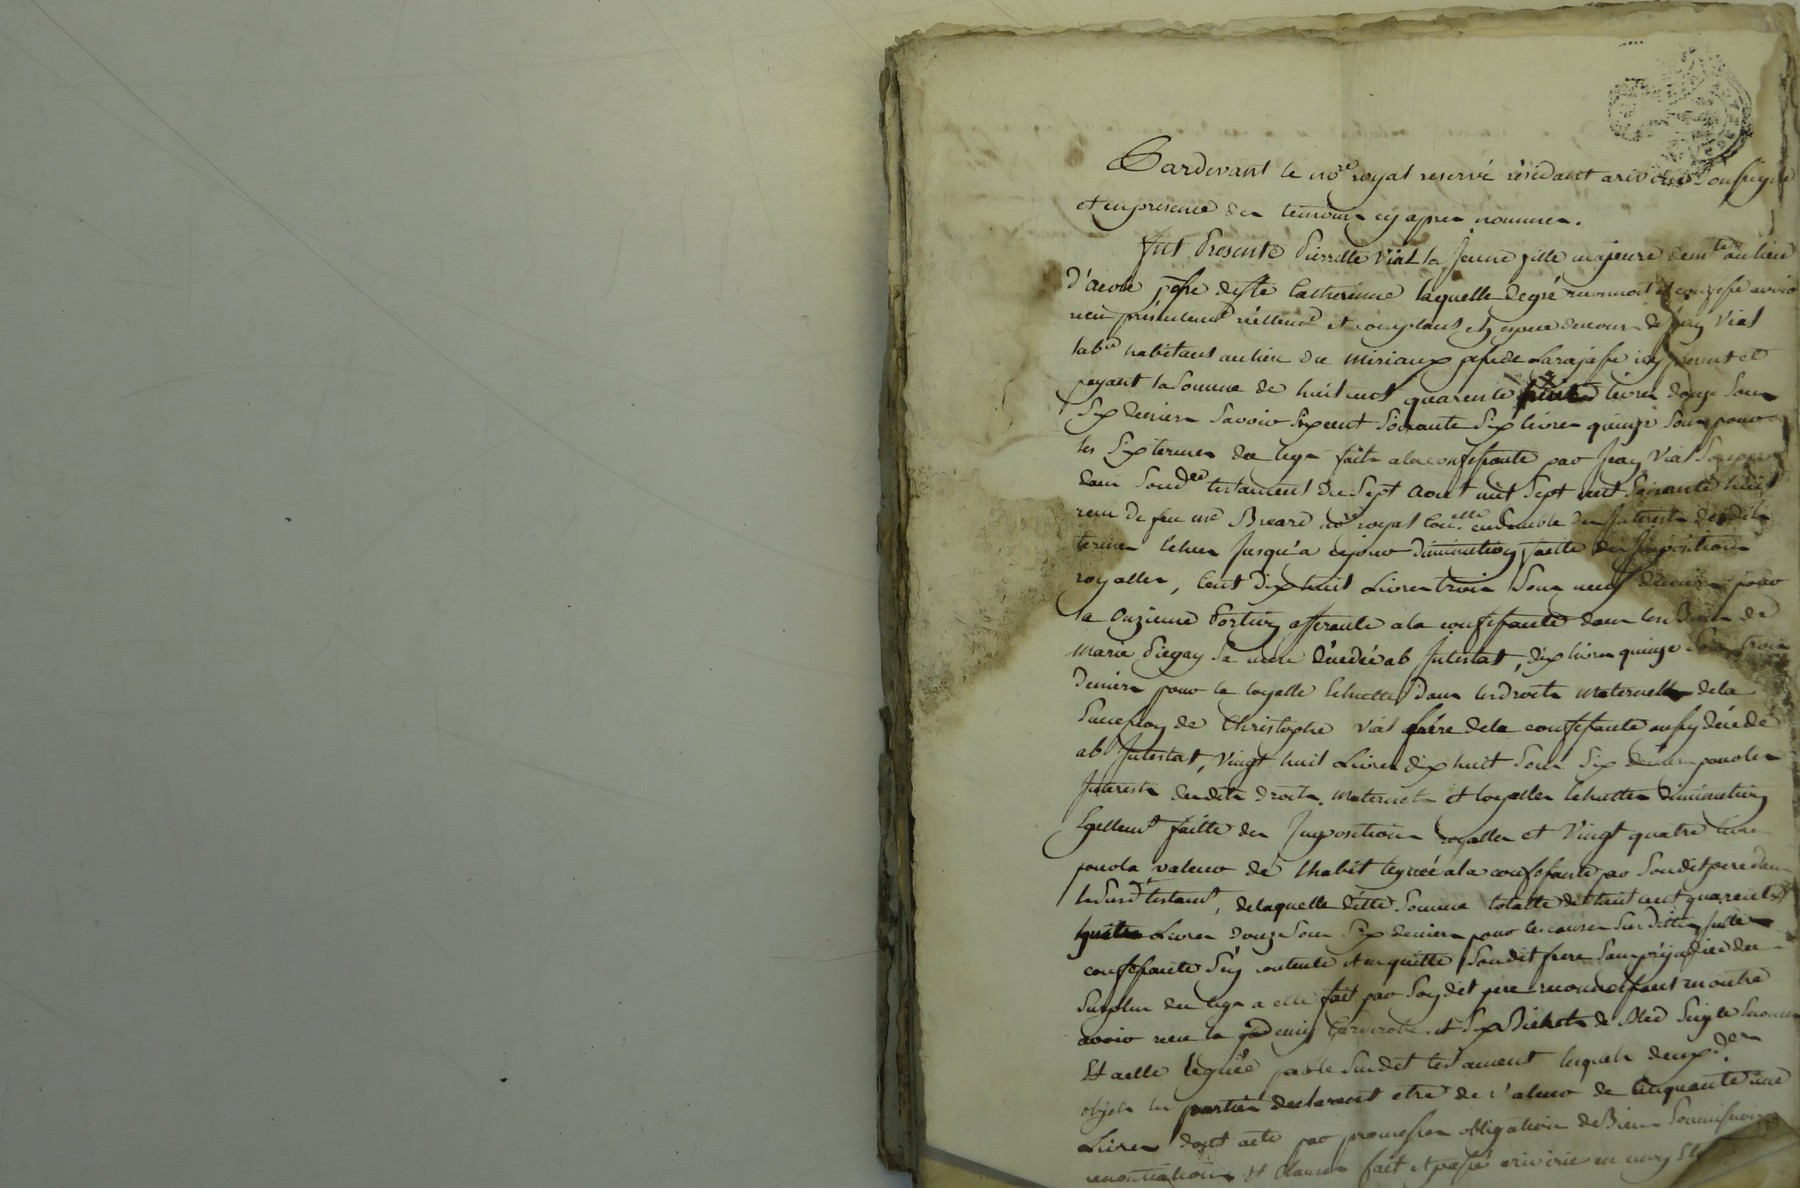 Pardevant le nore royal reservé résidant a rive soussigné
et en presence des temoins cy apres nommés.
fut Presente Pierrette Vial la Jeune fille majeure demte au lieu
d'aevole psse de Ste Catherine laquelle de gré reconnoit et confesse avoir
reçu présentement réellemt et comptant en espece de cours de Jean Vial
labr habitant au lieu des miriaux psse de Larajasse icy present et
payant la Somme de huit cent quarente livres douze Sous
Six deniers Savoir Six cent Soixante Six livres quinze Sous pour
les Six termes du legs fait a la confessante par Jean Vial Son pere
dans Sond testament du Sept Aout mil Sept cent Soixante huit
recu de feu me Breard nore royal ensemble des Interests desdits
termes echus Jusqu'a ce jour diminution faitte des Impositions
royalles, Cent dix huit Livres trois Sous neuf deniers pour
la Onzieme Portion afferante a la confessante dans les Biens de
Marie Piegay Sa mere décédée ab Intestat, dix livres quinze Sous trois
deniers pour la loyalle echutte dans les droits maternels de la
Succession de Christophe Vial frére de la confessante aussy décédé
ab Intestat, Vingt huit Livres dix huit Sous Six deniers pour les
Interests desdits droits maternels et loyalles echuttes diminution
Egallemt faitte des Impositions royalles et Vingt quatre livres
pour la valeur de l'habit legué a la confessante par Sondit pere dans
le Susdt testamt, de laquelle ditte Somme totalle de huit cent quarente
quatre Livres douze Sous Six deniers pour les causes Susdittes
confessante S'en contente et en quitte Sondit frere Sans préjudice du
Surplus du legs a elle fait par Sondit pere reconnoissant en outre
avoir recu la Garderobe et Six Bichets de Bled Seigle
Et a elle leguée par le Susdit testament lesquels deux
objets les parties declarent etre de valeur de Cinquante une
Livres dont acte par promesses obligation de Biens Soumissions
renontiations Et Clauses fait et passé